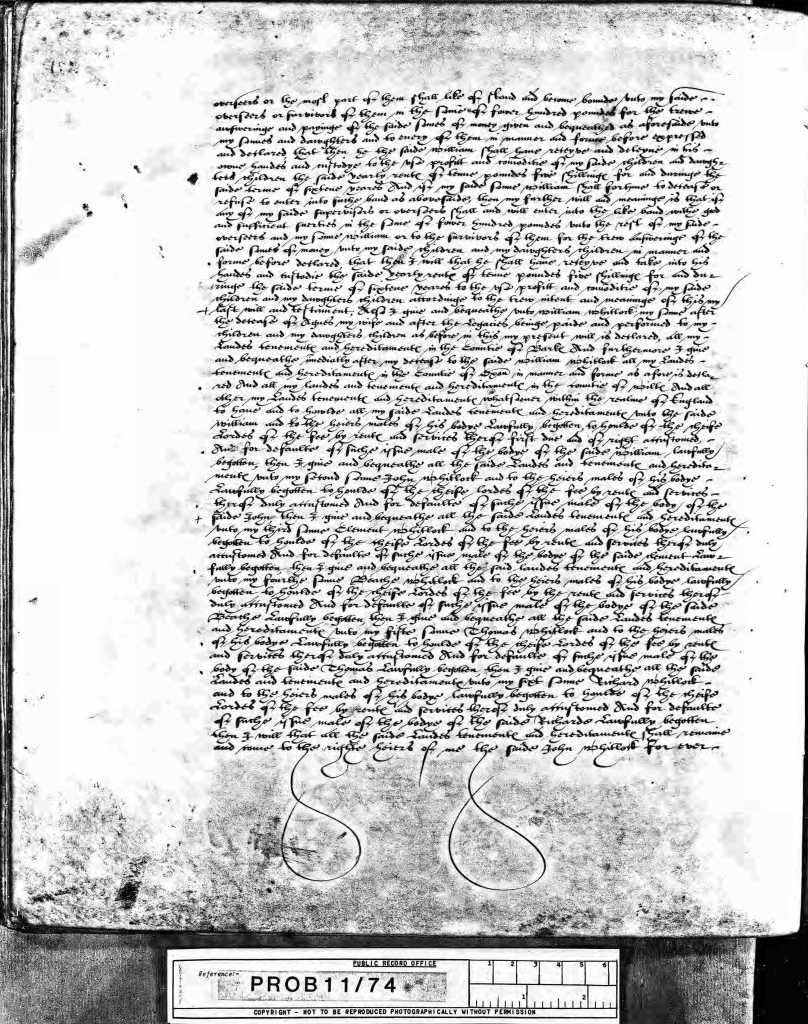 overseers or the most part of them shall like of stand and become bounde unto my saide
overseers or survivors of them in the some of fower hundred poundes for the trewe
answeringe and payinge of the saide somes of money given and bequeathed as aforesaide unto
my sonnes and dawghters and to every of them in manner and forme before expressed
and declared that then he the saide William shall have receyve and deteyne in his
owne handes and custodye to the use profitt and comoditie of my saide children and dawgh
ters children the saide yearly rente of tenne poundes five shillinge for and duringe the
saide terme of sixtene yeares And yf my saide sonne William shall fortune to decease or
refuse to enter into suche band as abovesaide, then my further will and meaninge is that yf
any of my saide supervisors or overseers shall and will enter into the like band withe good
and sufficient suerties in the some of fower hundred poundes unto the rest of my saide
overseers and my sonne William or to the survivors of them for the trew answeringe of the
saide somes of money unto my saide children and my dawghters children in manner and
forme before declared that then I will that he shall have receyve and take into his
handes and custodie the saide yearly rente of tenne poundes five shillinge for and du
ringe the saide terme of sixtene yeares to the use profitt and comoditie of my saide
children and my dawghters children accordinge to the trew intent and meaninge of this my
last will and testament, Also I give and bequeathe unto William Whitlock my sonne after
the decease of Agnes my wife and after the Legacies beinge paide and performed to my
children and my dawghters children as before in this my present will is declared, all my
Landes tenemente and hereditamente in the Countie of Bark And furthermore I give
and bequeathe imediatly after my decease to the saide William Whitlock all my Landes
tenemente and hereditamente in the Countie of Oxon in manner and forme as afore is decla
red And all my Landes and tenemente and hereditamente in the countie of Wilts And all
other my Landes tenemente and hereditamente whatsoever within the realme of England
to have and to howlde all my saide Landes tenemente and hereditamente unto the saide
William and to the heiers males of his bodye Lawfully begotten to houlde of the cheife
Lordes of the fee by rente and services therof first due and of right accustomed
And for defaulte of suche yssue male of the bodye of the saide William lawfully
begotten, then I give and bequeathe all the saide Landes and tenemente and heredita
mente unto my second sonne John Whitlock and to the heiers males of his bodye
Lawfully begotten to houlde of the cheife lordes of the fee by rente and services
therof duly accustomed And for defaulte of suche yssue male of the body of the
saide John then I give and bequeathe all the saide Landes tenemente and hereditamente
unto my third sonne Clement Whitlock and to the heiers males of his bodye lawfully
begotten to houlde of the cheife Lordes of the fee by rente and services therof duly
accustomed And for defaulte of suche yssue male of the bodye of the saide Clement Law
fully begotten then I give and bequeathe all the said landes tenemente and hereditamente
unto my fourthe sonne Beathe Whitlock and to the heiers males of his bodye lawfully
begotten to houlde of the cheife Lordes of the fee by the rente and services therof
duly accustomed And for defaulte of suche yssue male of the bodye of the saide
Beathe Lawfully begotten then I give and bequeathe all the saide Landes tenemente
and hereditamente unto my fifte sonne Thomas Whitlock and to the heiers males
of his bodye Lawfully begotten to houlde of the cheife Lordes of the fee by rente
and services therof duly accustomed And for defaulte of suche yssue male of the
body of the saide Thomas Lawfully begotten then I give and bequeathe all the saide
Landes and tenemente and hereditamente unto my sixt sonne Richard Whitlock
and to the heiers males of his bodye lawfully begotten to houlde of the cheife
Lordes of the fee by rente and services therof duly accustomed And for defaulte
of suche yssue male of the bodye of the saide Richarde Lawfully begotten
then I will that all the saide Landes tenemente and hereditamente shall remaine
and come to the righte heiers of me the saide John Whitlock for ever
PUBLIC RECORD OFFICE
Reference:-
PROB 11/74
1 2 3 4 5 6
1 2
COPYRIGHT - NOT TO BE REPRODUCED PHOTOGRAPHICALLY WITHOUT PERMISSION